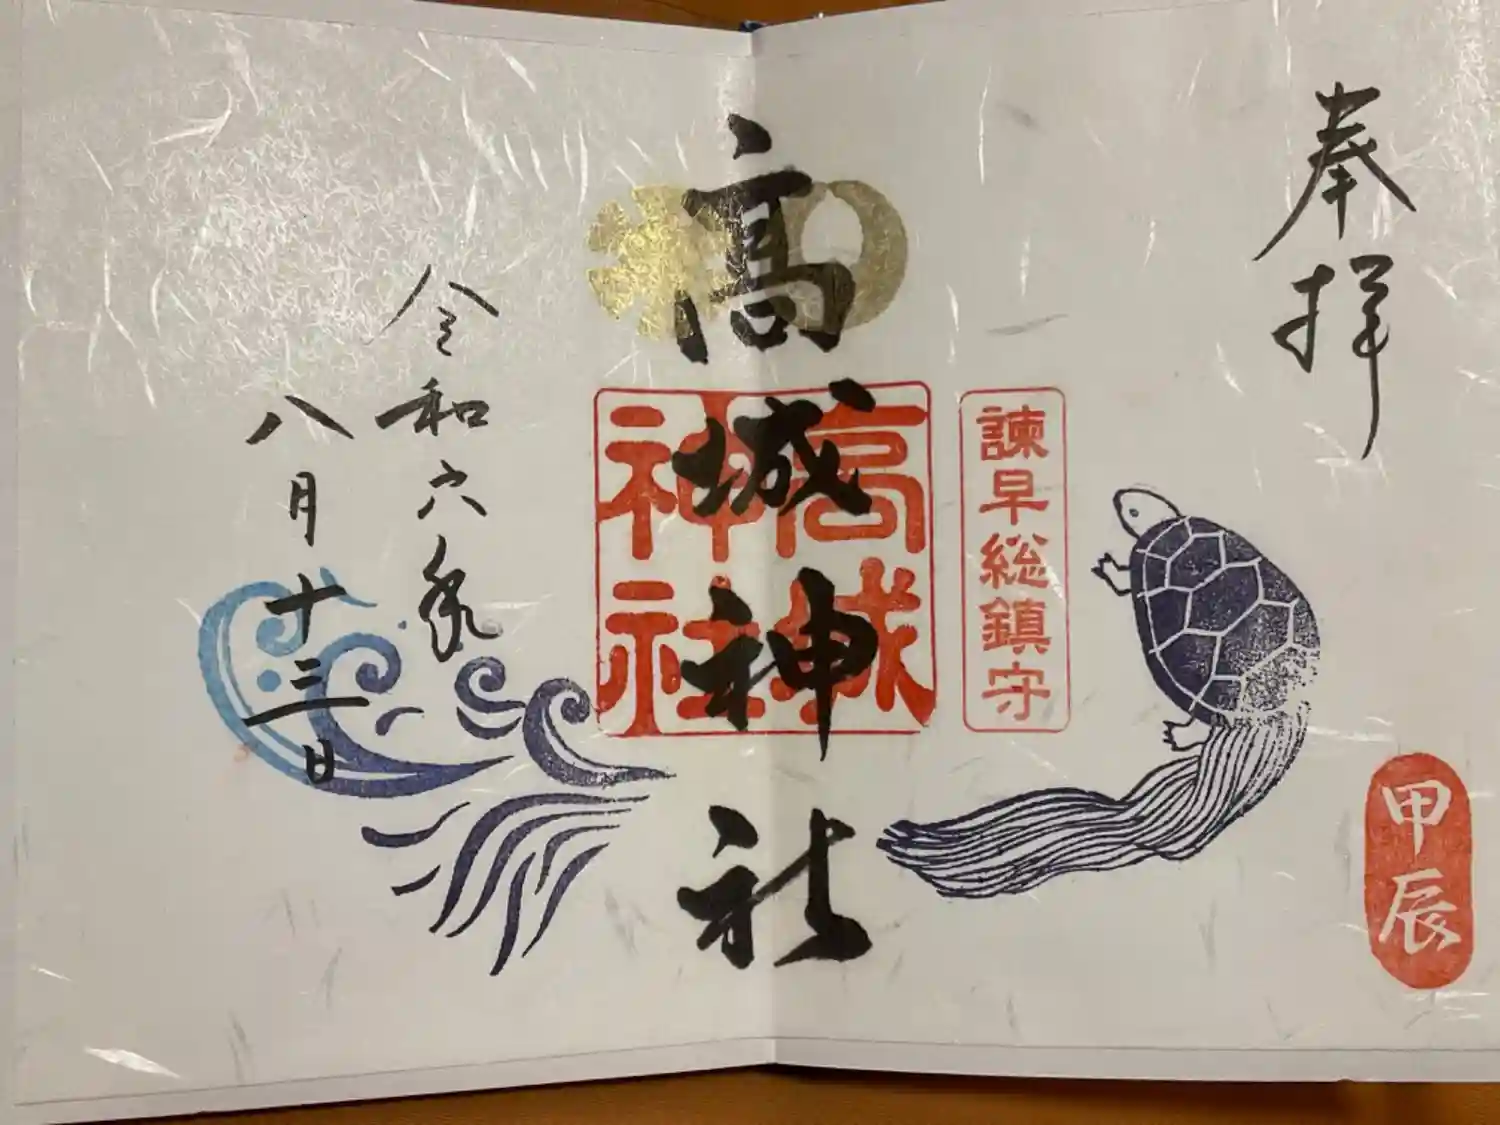 奉拝
甲辰
諫早総鎮守
高城神社
高城神社
令和六年
八月十三日